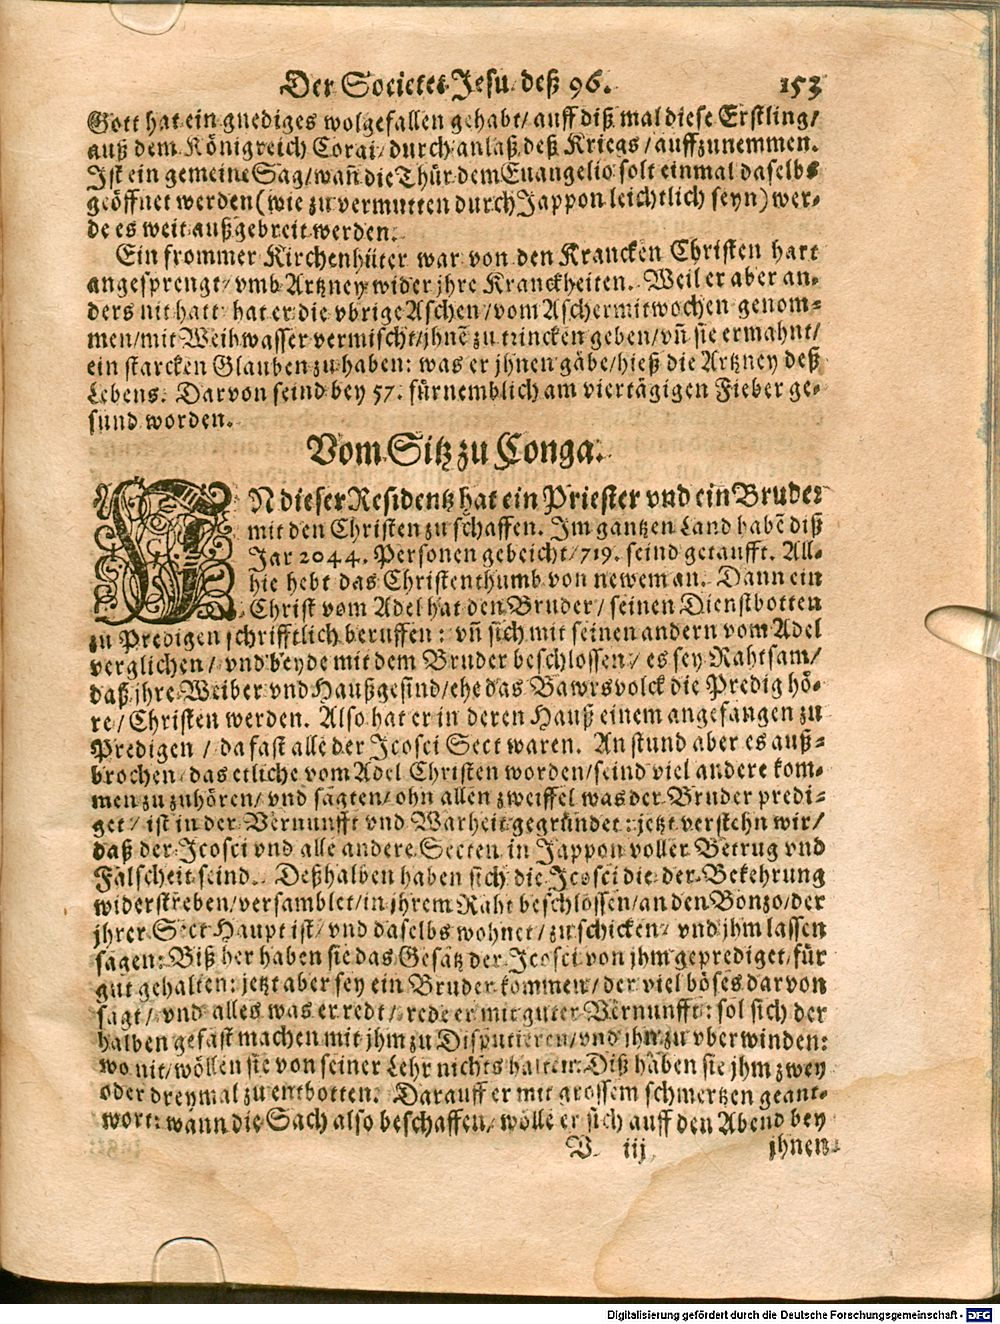 Der Societet Jesu deß 96. 153
Gott hat ein gnediges wolgefallen gehabt/ auff diß mal diese Erstling/
auß dem Königreich Corai/ durch anlaß deß Kriegs/ auffzunemmen.
Ist ein gemeine Sag/ wañ die Thür dem Euangelio solt einmal daselbs
geöffnet werden (wie zu vermutten durch Jappon leichtlich seyn) wer-
de es weit außgebreit werden.
Ein frommer Kirchenhüter war von den Krancken Christen hart
angesprengt/ vmb Artzney wider jhre Kranckheiten. Weil er aber an-
ders nit hatt/ hat er die vbrige Aschen/ vom Aschermitwochen genom-
men/ mit Weihwasser vermischt/ jhnē zu trincken geben/ vñ sie ermahnt/
ein starcken Glauben zu haben: was er jhnen gäbe/ hieß die Artzney deß
Lebens. Darvon seind bey 57. fürnemblich am viertägigen Fieber ge-
sund worden.
Vom Sitz zu Conga.
IN dieser Residentz hat ein Priester vnd ein Bruder
mit den Christen zu schaffen. Im gantzen Land habē diß
Jar 2044. Personen gebeicht/ 719. seind getaufft. All-
hie hebt das Christenthumb von newem an. Dann ein
Christ vom Adel hat den Bruder/ seinen Dienstbotten
zu Predigen schrifftlich beruffen: vñ sich mit seinen andern vom Adel
verglichen/ vnd beyde mit dem Bruder beschlossen/ es sey Rahtsam/
daß jhre Weiber vnd Haußgesind/ ehe das Bawrsvolck die Predig hö-
re/ Christen werden. Also hat er in deren Hauß einem angefangen zu
Predigen/ da fast alle der Icosci Sect waren. An stund aber es auß-
brochen/ das etliche vom Adel Christen worden/ seind viel andere kom-
men zu zuhören/ vnd sagten/ ohn allen zweiffel was der Bruder predi-
get/ ist in der Vernunfft vnd Warheit gegründet: jetzt verstehn wir/
daß der Icosci vnd alle andere Secten in Jappon voller Betrug vnd
Falscheit seind. Deßhalben haben sich die Icosci die der Bekehrung
widerstreben/ versamblet/ in jhrem Raht beschlossen/ an den Bonzo/ der
jhrer Sect Haupt ist/ vnd daselbs wohnet/ zu schicken/ vnd jhm lassen
sagen: Biß her haben sie das Gesätz der Icosci von jhm geprediget/ für
gut gehalten: jetzt aber sey ein Bruder kommen/ der viel böses darvon
sagt/ vnd alles was er redt/ rede er mit guter Vernunfft: sol sich der
halben gefast machen mit jhm zu Disputieren/ vnd jhn zu vberwinden:
wo nit/ wöllen sie von seiner Lehr nichts halten. Diß haben sie jhm zwey
oder dreymal zu entbotten. Darauff er mit grossem schmertzen geant-
wort: wann die Sach also beschaffen/ wölle er sich auff den Abend bey
V iij jhnen
Digitalisierung gefördert durch die Deutsche Forschungsgemeinschaft - DFG